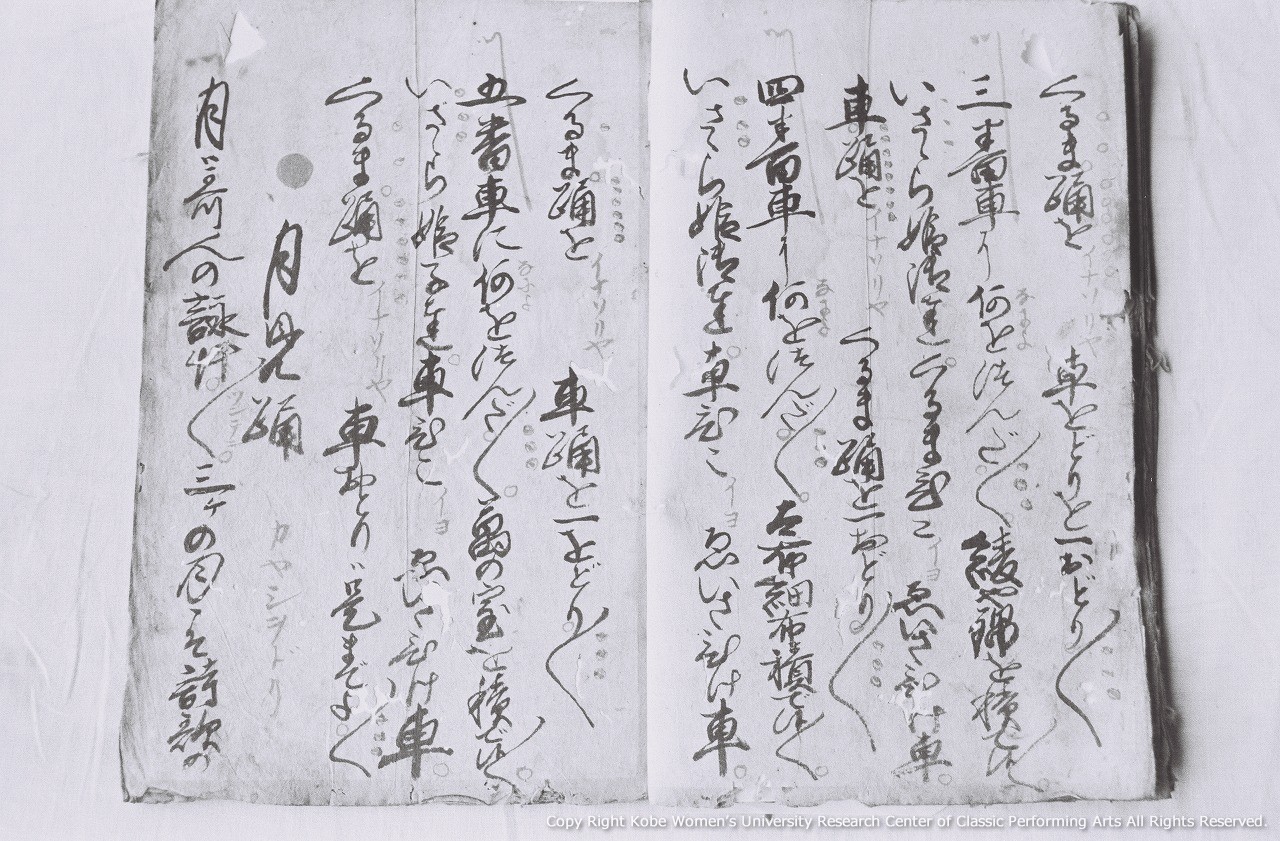 くるま踊を イナソリヤ 車をどりを一おどり〱
三番車に何をつんだ〱 綾や錦を積で候
いざさら姫御達くるまひこ イヨ ゑいさひけ車
車踊を イナソリヤ くるま踊を一おどり〱
四番車に何をつんだ〱 太布細布積で候〱
いざさら姫御達車ひこ イヨ ゑいさひけ車
くるま踊を イナソリヤ 車踊を一をどり〱
五番車に何をつんだ〱 萬の宝を積で候〱
いざさら姫子達車ひこ イヨ ゑいさひけ車
くるま踊を イナソリヤ 車おとりは是までよ〱
月見踊
カヤシヲドリ
月に三人の詠 〱 三ケの月こそ詩歌の
Copy Right Kobe Women's University Research Center of Classic Performing Arts All Rights Reserved.